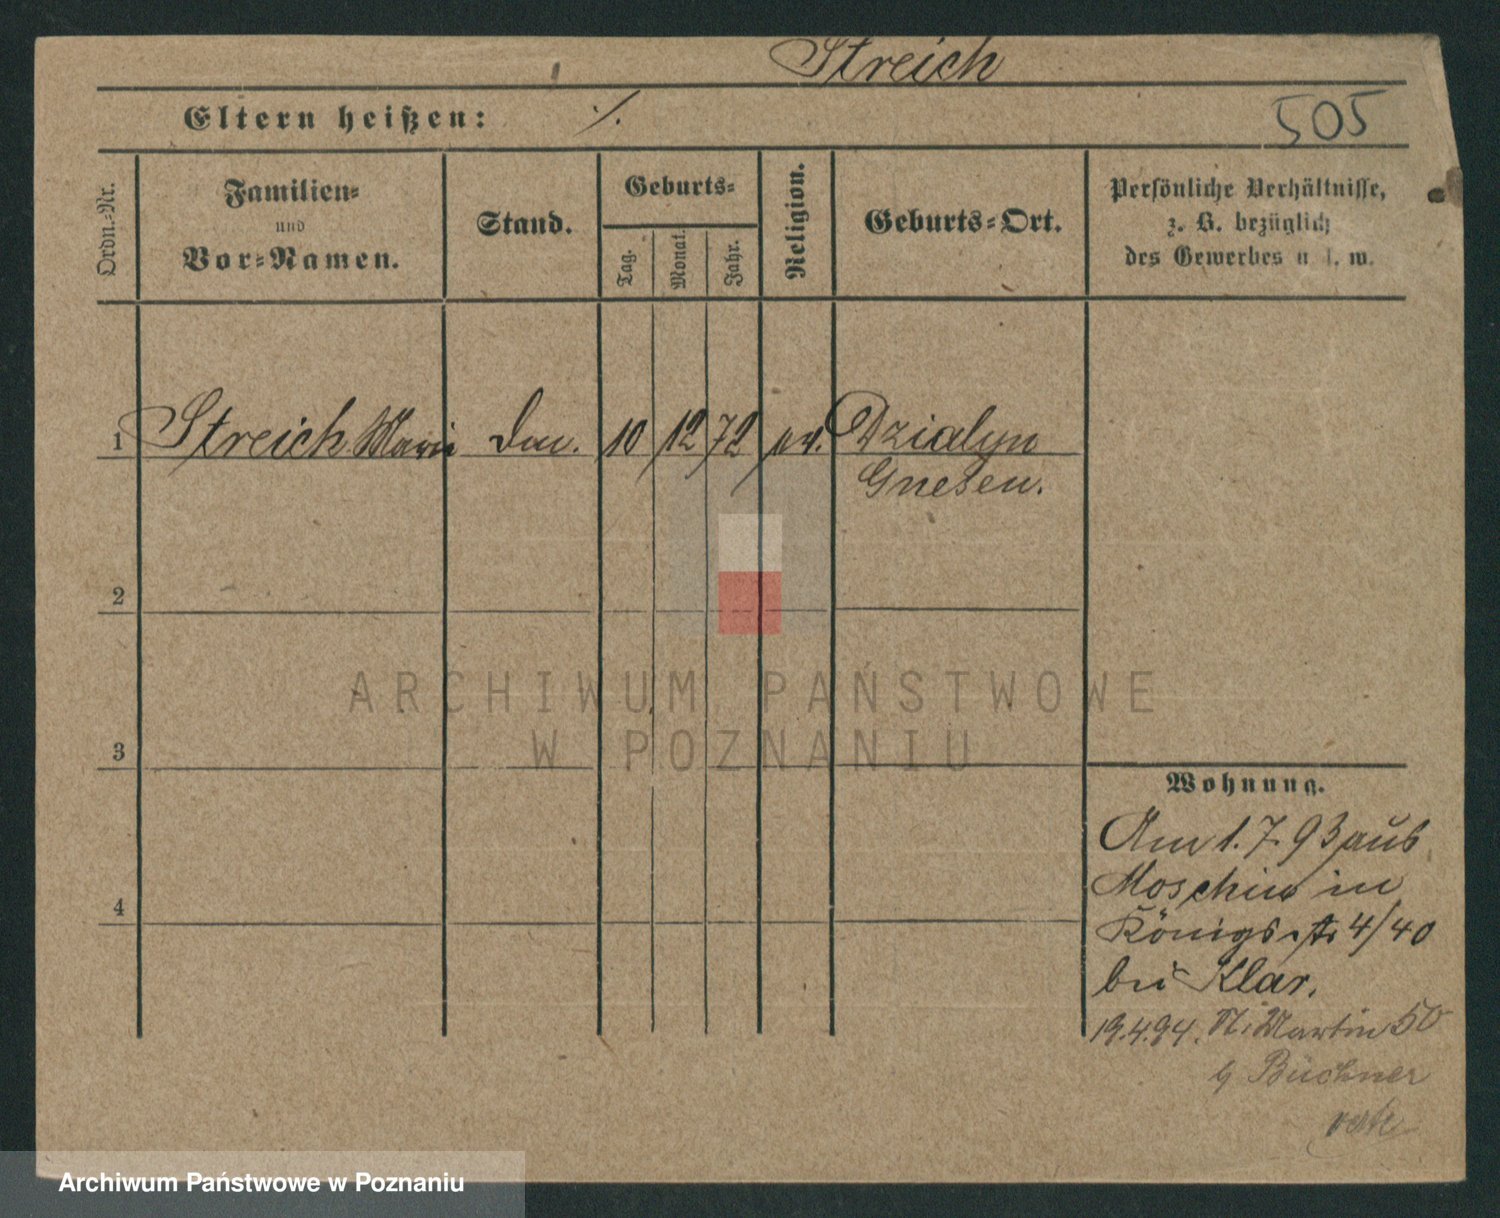 Streich
Eltern heißen: ./.
505
Ordn.=Nr.
Familien=
und
Vor=Namen.
Stand.
Geburts=
Tag.
Monat.
Jahr.
Religion.
Geburts=Ort.
Persönliche Verhältnisse,
z. B. bezüglich
des Gewerbes u. s. w.
1 Streich Marie 10 12 72 Dzialyn
Gnesen.
2
3
4
Wohnung.
Am 1. 7. 93 aus
Moschin in
Königsstr 4/40
bei Klar.
19.4.94. St. Martin 50
b Büchner
verte
ARCHIWUM PAŃSTWOWE
W POZNANIU
Archiwum Państwowe w Poznaniu